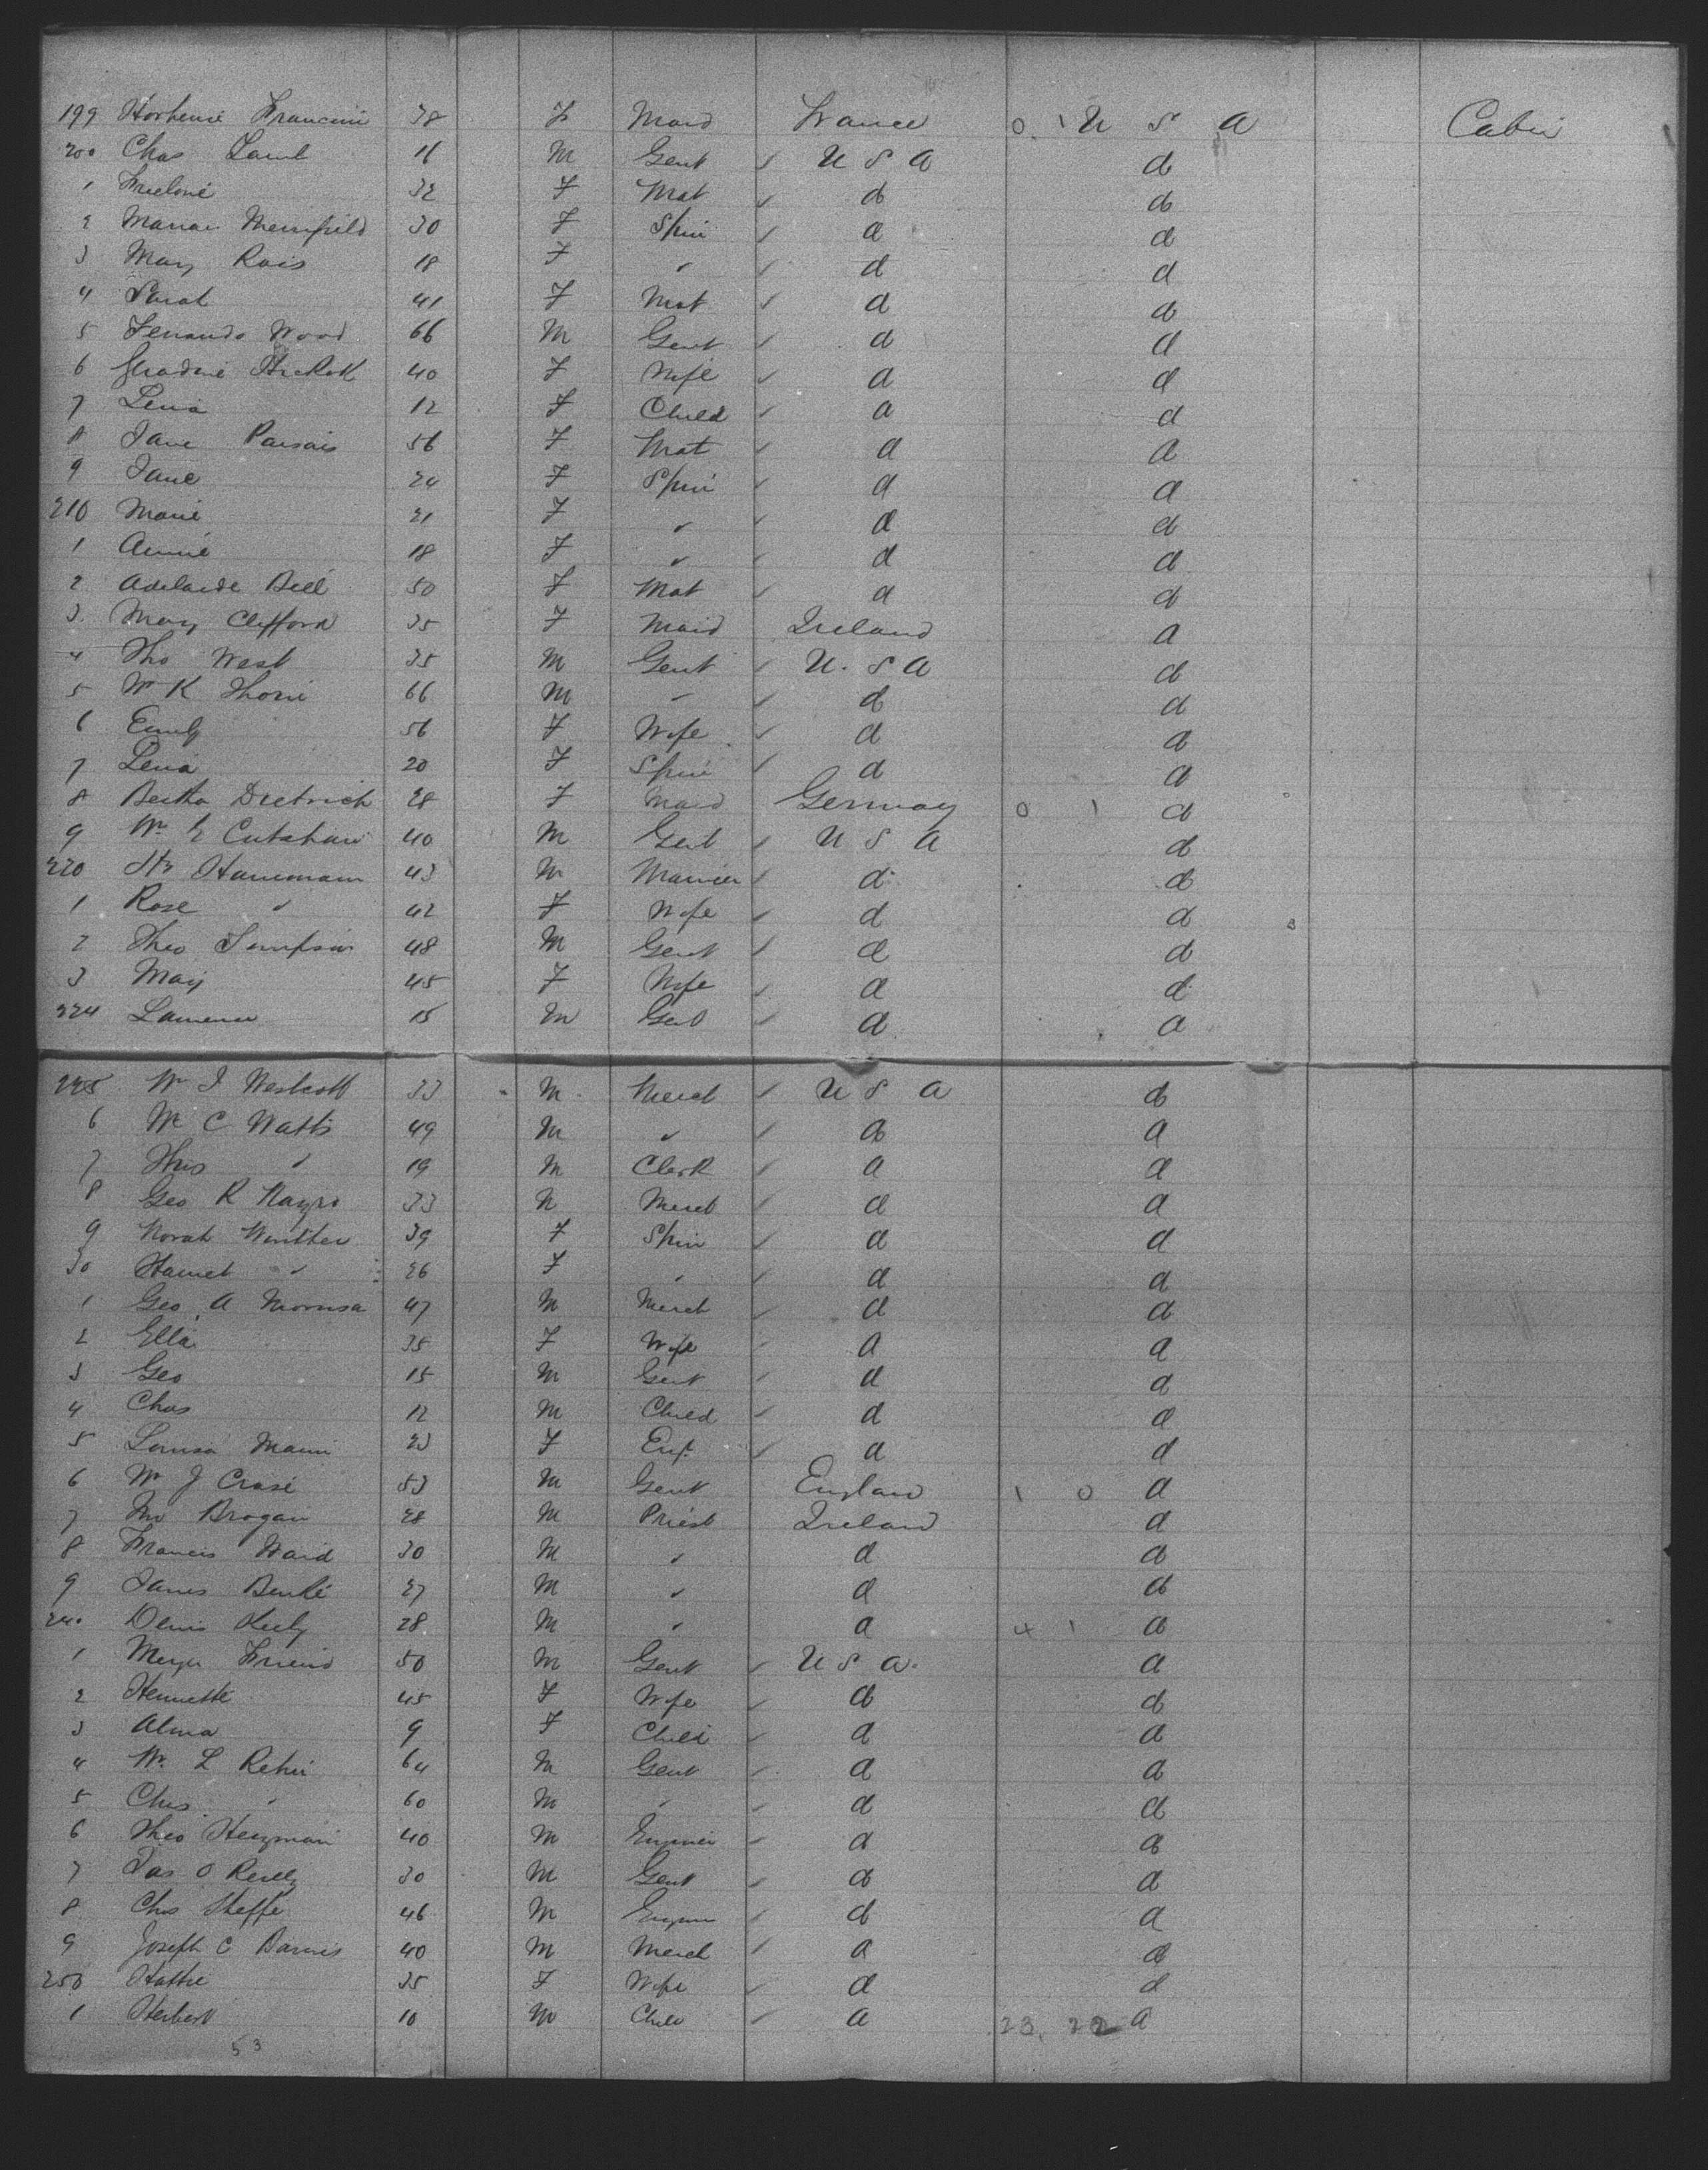 199 Hortense Francini 38 F Maid France 0. 1 U S A Cabin
200 Chas Lamb 16 M Gent ✓ U S A d
1 32 F Mat ✓ d d
2 Marian Merrifield 30 F Spin ✓ d d
3 Mary Rois 18 F " ✓ d d
4 Sarah 41 F Mat ✓ d d
5 Fernando Wood 66 M Gent ✓ d d
6 40 F Wife ✓ d d
7 Lena 12 F Child ✓ d d
8 Jane Parsais 56 F Mat ✓ d d
9 Jane 24 F Spin ✓ d d
210 Marie 21 F " ✓ d d
1 Annie 18 F " ✓ d d
2 Adelaide Bell 50 F Mat ✓ d d
3 Mary Clifford 35 F Maid Ireland d
4 Tho West 35 M Gent ✓ U. S A d
5 Wm K Thorn 66 M " ✓ d d
6 Emily 56 F Wife ✓ d d
7 Lena 20 F Spin ✓ d d
8 Bertha Dietrich 28 F Maid Germany 0 1 d
9 Wm E Cutshaw 40 M Gent ✓ U S A d
220 Hy Hanemann 43 M ✓ d d
1 Rose " 42 F Wife ✓ d d
2 Theo Simpson 48 M Gent ✓ d d
3 Mary 45 F Wife ✓ d d
224 Lawrence 15 M Gent ✓ d d
225 Wm J Westcott 33 M Merch ✓ U S A d
6 Wm C Watts 49 M " ✓ d d
7 Thos " 19 M Clerk ✓ d d
8 Geo R 33 M Merch ✓ d d
9 Norah Winther 39 F Spin ✓ d d
30 Harriet " 26 F " ✓ d d
1 Geo A Morrison 47 M Merch ✓ d d
2 Ella 35 F Wife ✓ d d
3 Geo 15 M Gent ✓ d d
4 Chas 12 M Child ✓ d d
5 Louisa Mann 23 F ✓ d d
6 Wm J Crase 53 M Gent England 1 0 d
7 Brogan 28 M Priest Ireland d
8 Francis Ward 30 M " d d
9 James 27 M " d d
240 Denis Keely 28 M " d 4 1 d
1 Meyer Friend 50 M Gent ✓ U S A. d
2 Hennette 45 F Wife ✓ d d
3 Alma 9 F Child ✓ d d
4 Wm L Rehn 64 M Gent ✓ d d
5 Chas " 60 M " ✓ d d
6 Theo Herzman 40 M Engineer ✓ d d
7 Jas O Reilly 30 M Gent ✓ d d
8 Chs Steffe 46 M ✓ d d
9 Joseph C Barnes 40 M Merch ✓ d d
250 Hattie 35 F Wife ✓ d d
1 Herbert 10 M Child ✓ d 23. 22 d
53